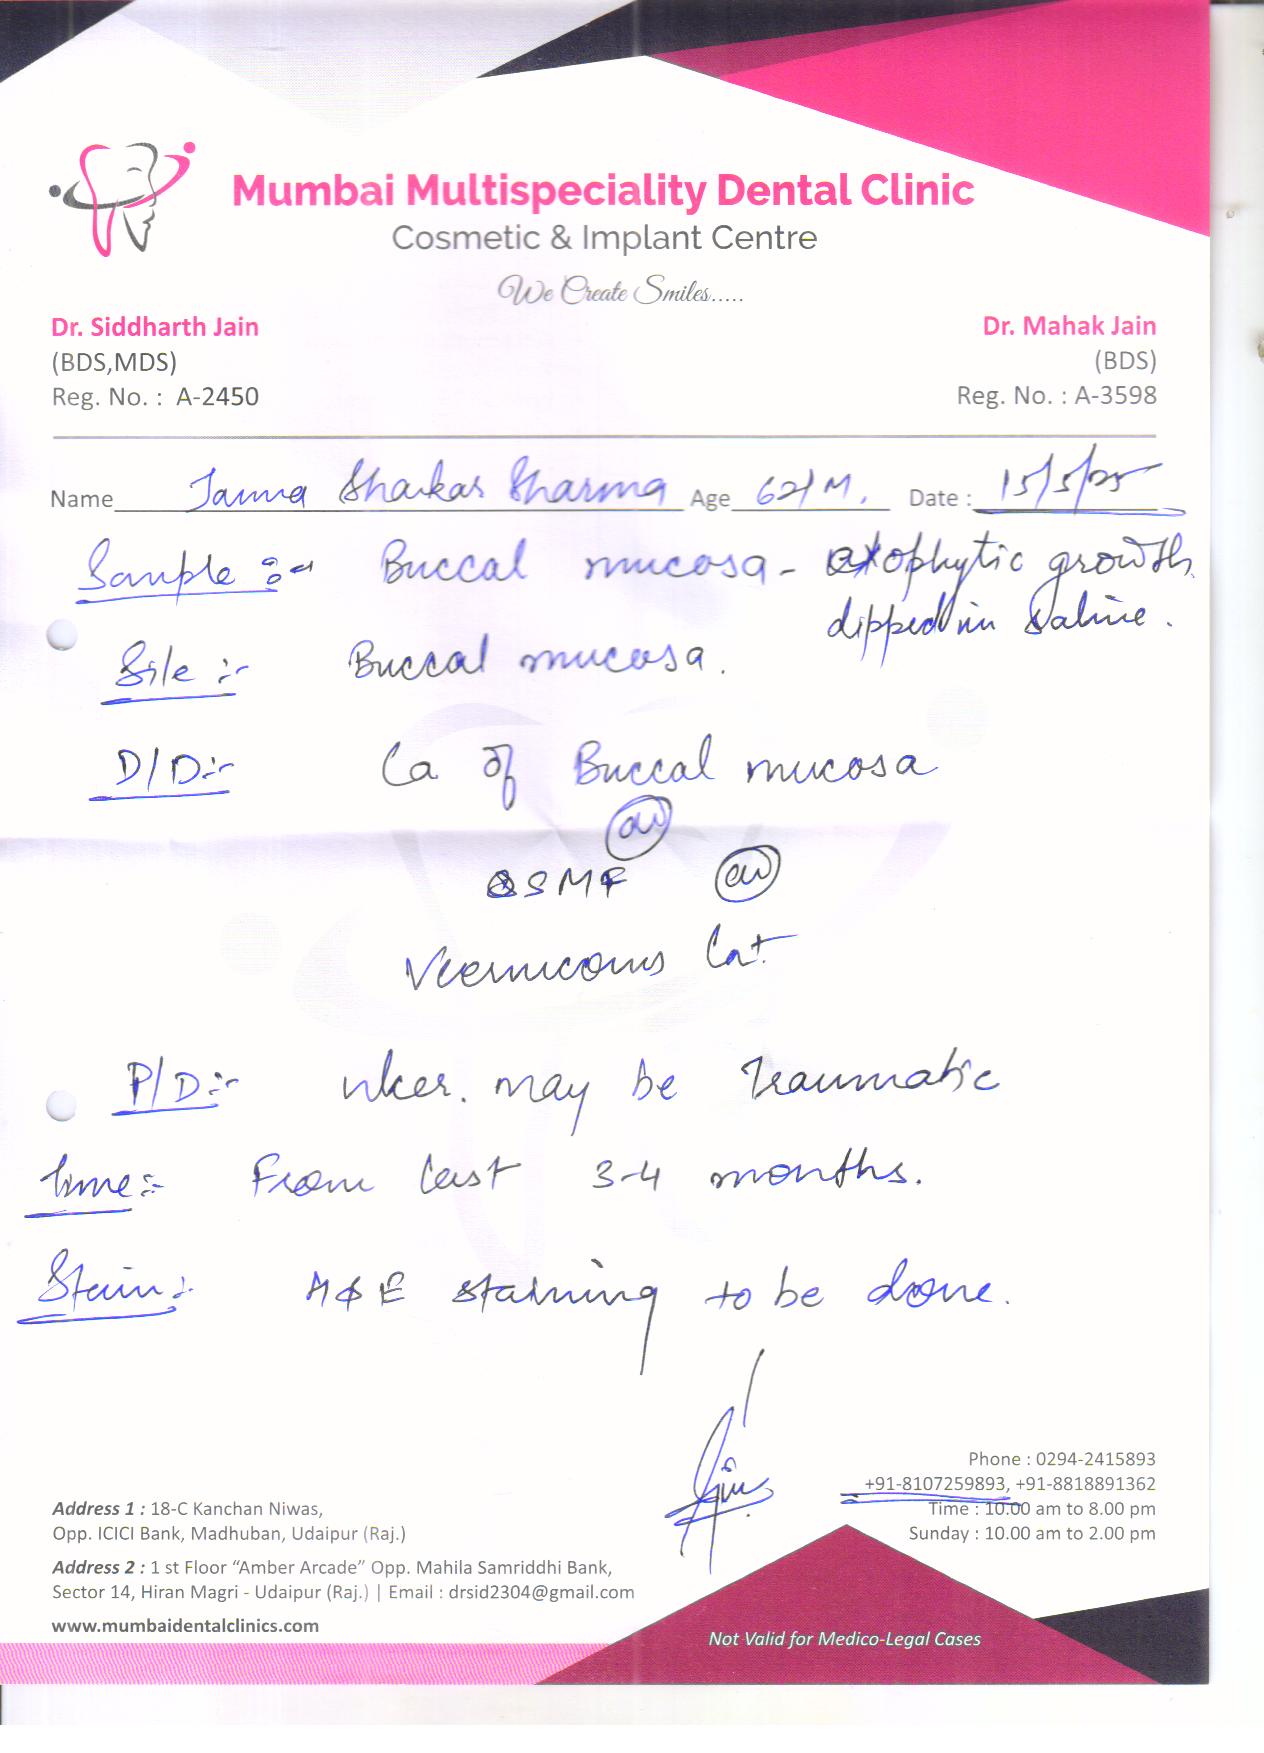 Mumbai Multispeciality Dental Clinic
Cosmetic & Implant Centre
We Create Smiles.....
Dr. Siddharth Jain
(BDS,MDS)
Reg. No. : A-2450
Dr. Mahak Jain
(BDS)
Reg. No. : A-3598
Name Jamna Shankar Sharma Age 62/M. Date : 15/5/25
Sample :- Buccal mucosa - exophytic growth
dipped in saline.
Site :- Buccal mucosa.
D/D:- Ca of Buccal mucosa
or
OSMF or
Verrucous Ca.
P/D:- ulcer. may be traumatic
time:- From last 3-4 months.
Stain:- H & E staining to be done.
Phone : 0294-2415893
+91-8107259893, +91-8818891362
Time : 10.00 am to 8.00 pm
Sunday : 10.00 am to 2.00 pm
Address 1 : 18-C Kanchan Niwas,
Opp. ICICI Bank, Madhuban, Udaipur (Raj.)
Address 2 : 1 st Floor “Amber Arcade” Opp. Mahila Samriddhi Bank,
Sector 14, Hiran Magri - Udaipur (Raj.) | Email : drsid2304@gmail.com
www.mumbaidentalclinics.com
Not Valid for Medico-Legal Cases